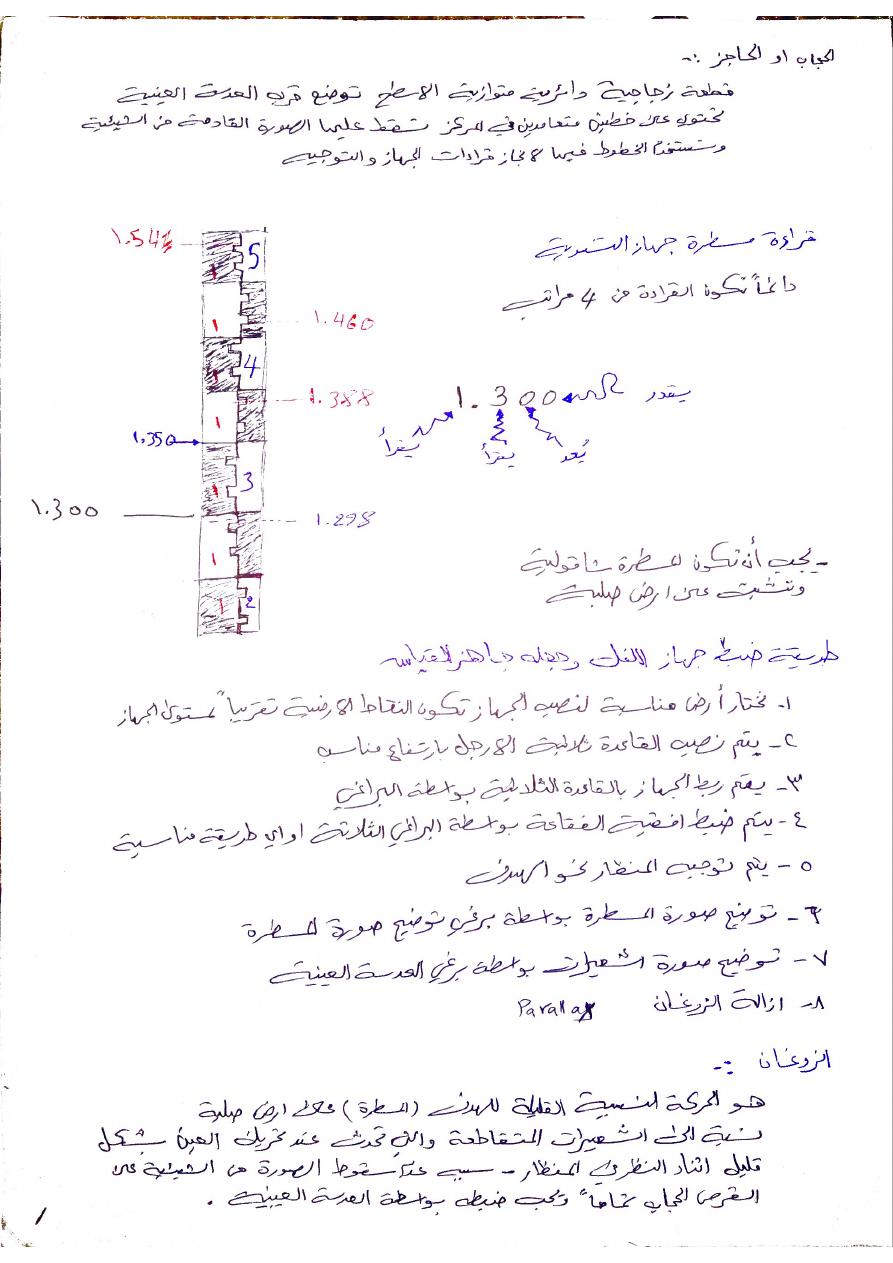 الحجاب او الحاجز :-
قطعة زجاجية دائرية متوازية الاسطح توضع قرب العدسة العينية
تحتوي على خطين متعامدين في المركز تسقط عليها الصورة القادمة من الشيئية
وتستخدم الخطوط فيها لانجاز قراءات الجهاز والتوجيه
قراءة مسطرة جهاز التسوية
دائماً تكون القراءة من 4 مراتب
1.54
5
1
1.460
1
4
1
1.388
1
1.350
3
1
1.300
1.295
1
2
1
يقدر 1.300
يقرأ يقرأ يُعد
- يجب أن تكون المسطرة شاقولية
وتثبت على ارض صلبة
طريقة ضبط جهاز اللفل وجعله جاهز للقياس
١- نختار أرض مناسبة لنصب الجهاز تكون النقاط الارضية تقريباً بمستوى الجهاز
٢- يتم نصب القاعدة ثلاثية الارجل بارتفاع مناسب
٣- يتم ربط الجهاز بالقاعدة الثلاثية بواسطة البراغي
٤- يتم ضبط افقية الفقاعة بواسطة البراغي الثلاثة او اي طريقة مناسبة
٥- يتم توجيه المنظار نحو الهدف
٦- توضيح صورة المسطرة بواسطة برغي توضيح صورة المسطرة
٧- توضيح صورة الشعيرات بواسطة برغي العدسة العينية
٨- ازالة الزوغان Parallax
الزوغان :-
هو الحركة النسبية القليلة للهدف (المسطرة) على ارض صلبة
نسبة الى الشعيرات المتقاطعة والتي تحدث عند تحريك العين بشكل
قليل اثناء النظر في المنظار - سببه عدم سقوط الصورة من الشيئية على
القرص الحجاب تماماً ويجب ضبطه بواسطة العدسة العينية .
١